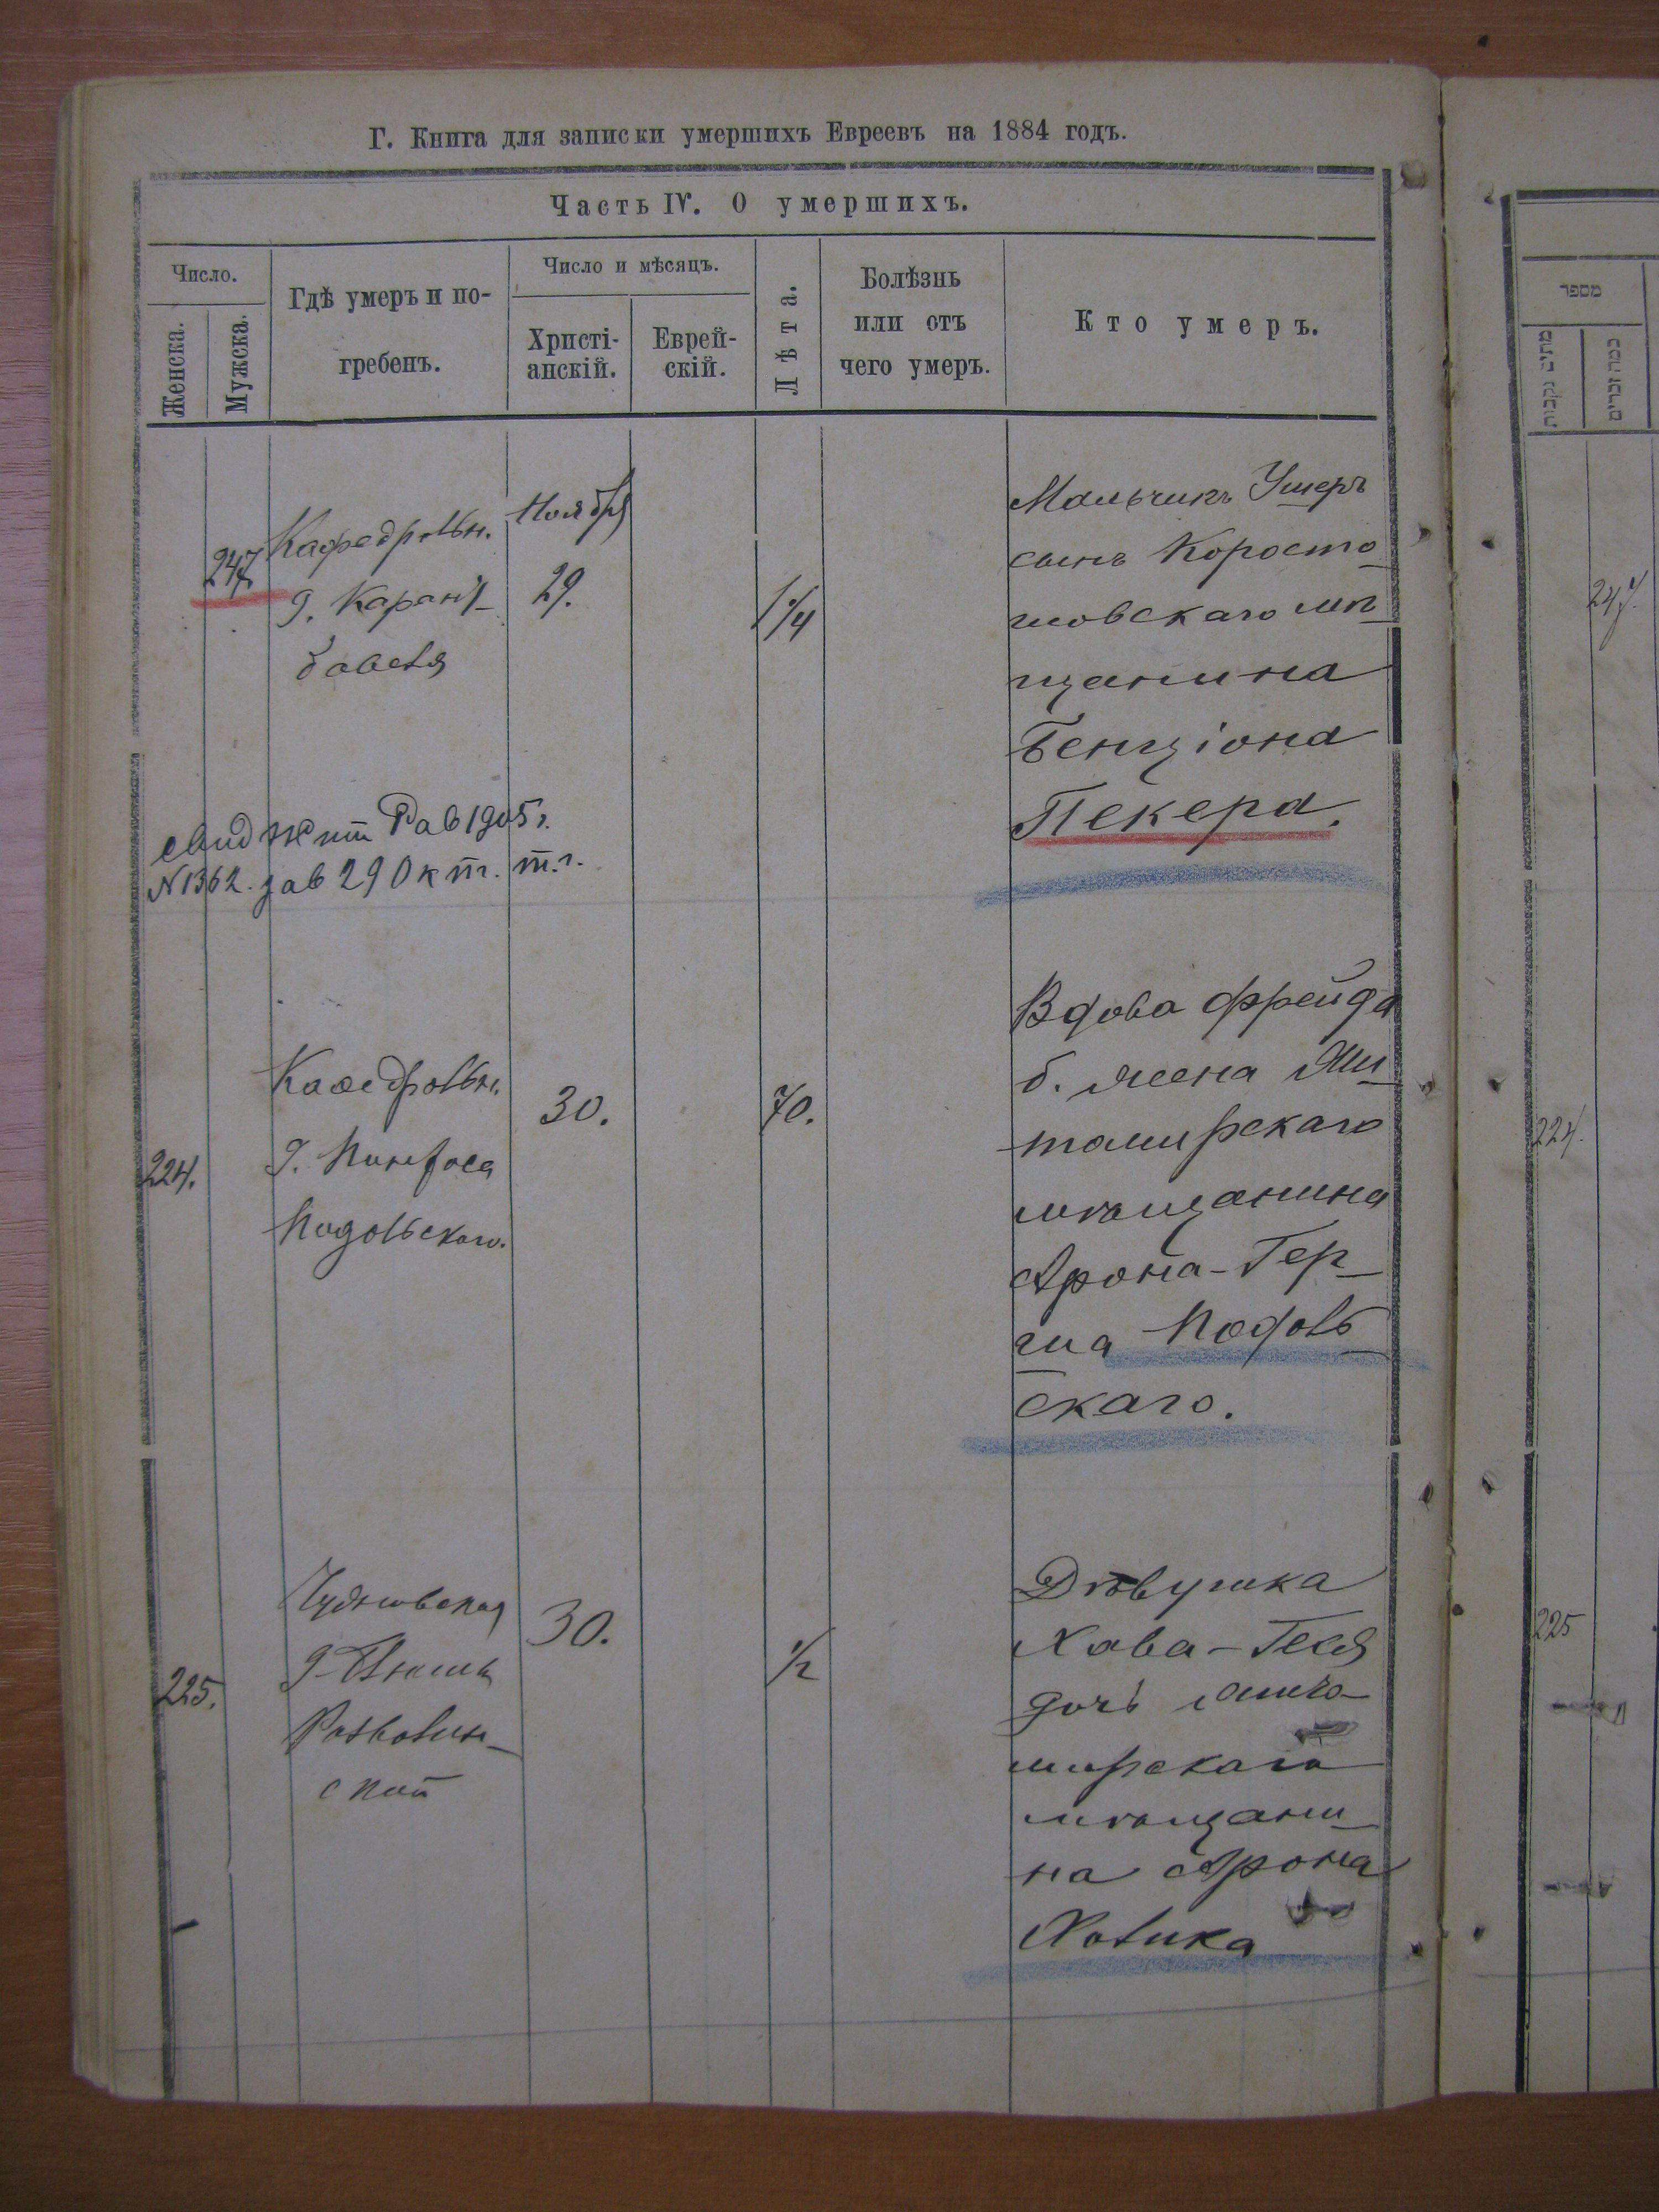 Г. Книга для записки умершихъ Евреевъ на 1884 годъ.
Часть IV. О умершихъ.
Число.
Женска.
Мужска.
Гдѣ умеръ и по-
гребенъ.
Число и мѣсяцъ.
Христі-
анскій.
Еврей-
скій.
Лѣта.
Болѣзнь
или отъ
чего умеръ.
Кто умеръ.
247
Кафедральн.
д.
Ноября
29.
1 1/4
Мальчикъ Ушеръ
сынъ Коросто
шовскаго мѣ
щанина
Бенціона
Пекера.
1905 г.
N 1362. 29 Окт. т.г.
224.
Кафедральн.
д. Пинхоса
Подольскаго.
30.
70.
Вдова Фрейда
б. жена Жи
томирскаго
мѣщанина
Арона-Гер
ша Подоль
скаго.
225.
Чудновская
д.
30.
1/2
Дѣвушка
Хава-
дочь
мирскаго
мѣщани
на Арона
מספר
247.
224.
225